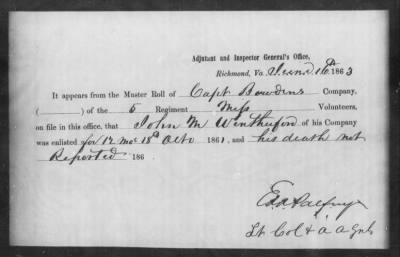 Adjutant and Inspector General's Office,
Richmond, Va. June 16th 1863
It appears from the Muster Roll of Capt Bowdens Company,
( ) of the 5 Regiment Miss Volunteers,
on file in this office, that John M Wintherford of his Company
was enlisted for 12 mos 18th Octo 1861, and his death not
Reported 186
Ed A Palfrey
Lt Col & A A Genl